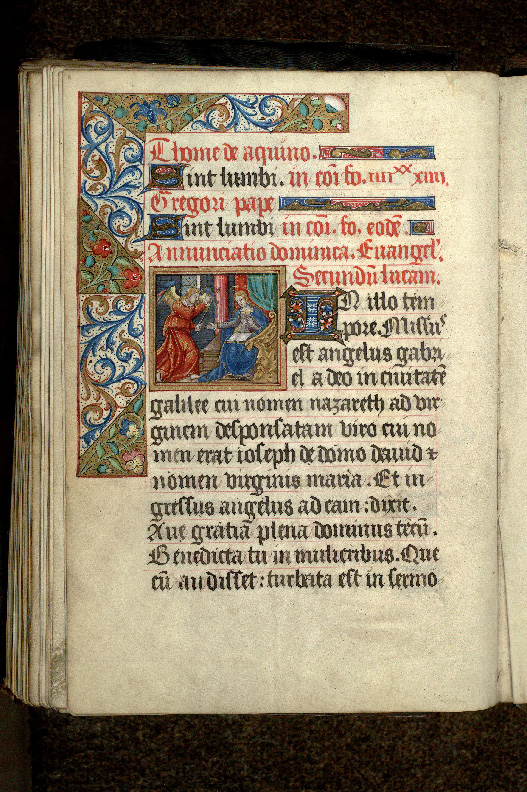 Thome de aquino.
Sint lumbi. in coı̄ fo. iiiiˣˣ xiiii.
Gregorii pape
Sint lumbi in coı̄. fo. eodē
Annunciatio dominica. Euangel'.
Secundū lucam.
IN illo tem
pore. Missus
est angelus gabri
el a deo in ciuitatē
galilee cui nomen nazareth ad vir
ginem desponsatam viro cui no
men erat ioseph de domo dauid ⁊
nomen virginis maria. Et in
gressus angelus ad eam : dixit.
Aue gratia plena dominus tecū.
Benedicta tu in mulieribus. Que
cū audisset : turbata est in sermo